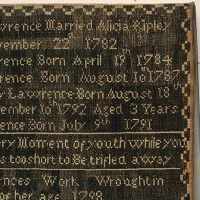 wrence Married Alicia Ripley
vember 22th 1782
rence Born April 19 1784
rence Born August 10 1787
y Lawrence Born August 18th
vember 10th 1792 Aged 3 Years
ence Born July 9th 1791
ry Moment of youth while you
is too short to Be trifled away
nces Work Wrought in
of her age 1798